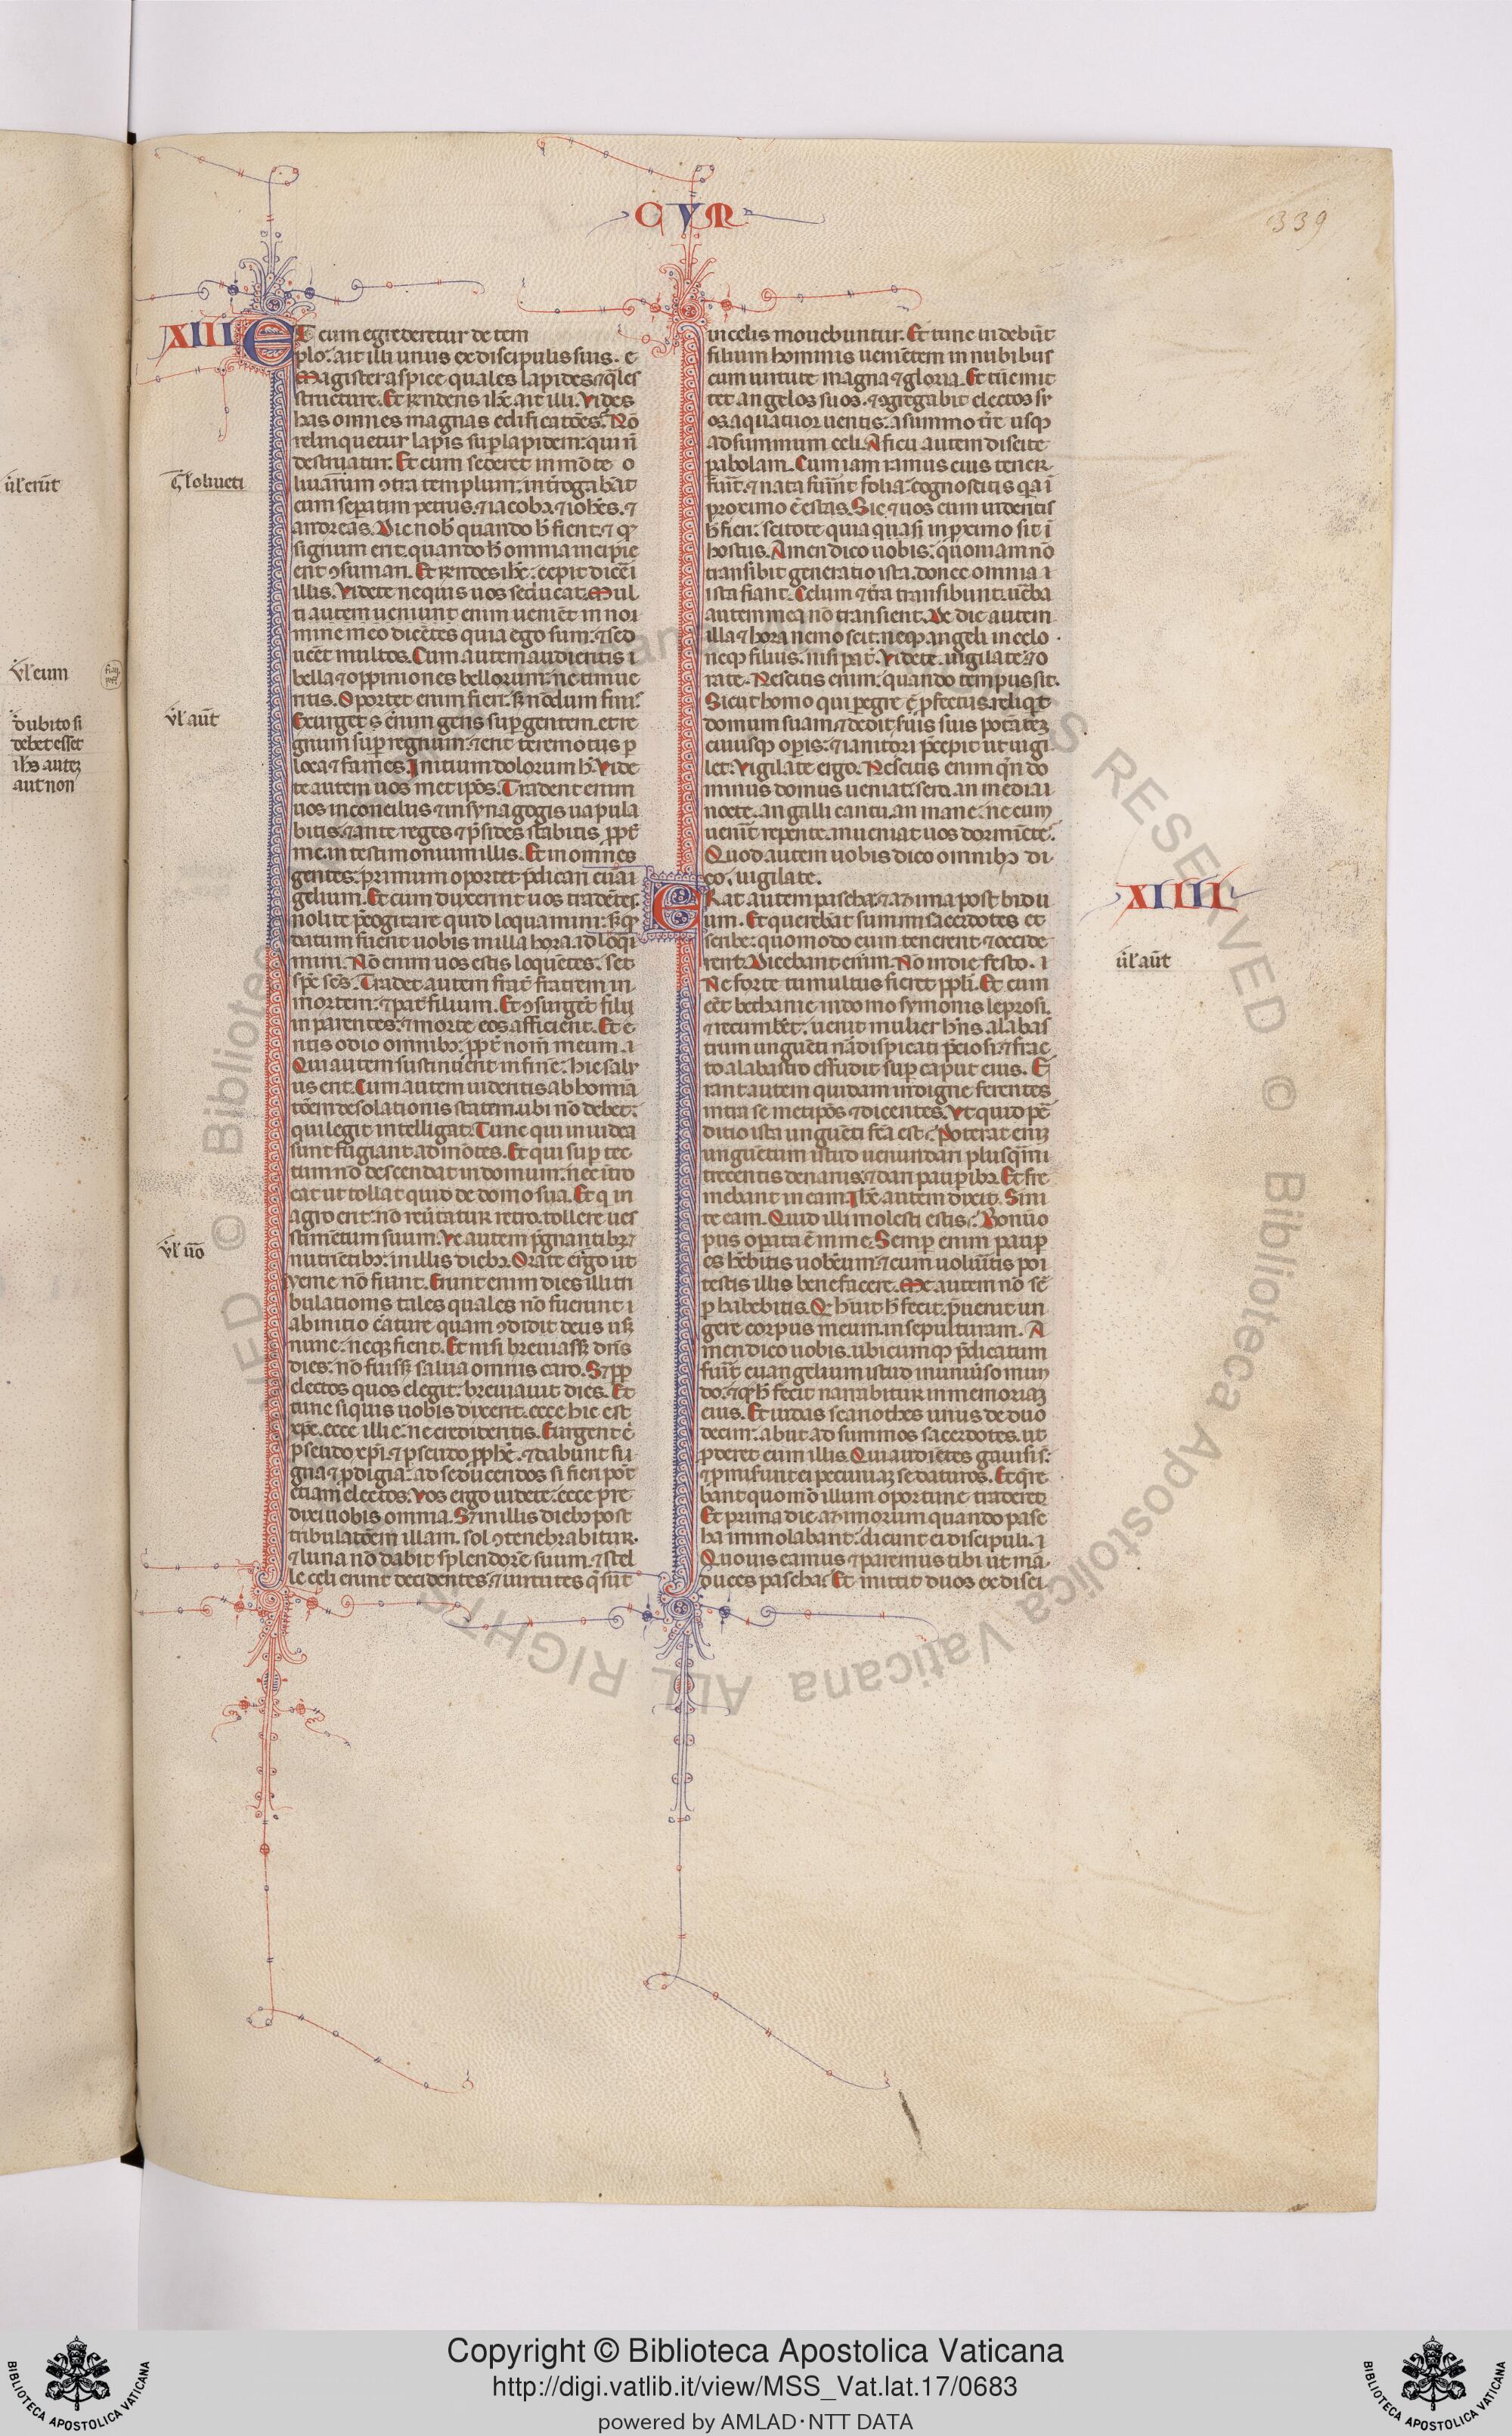 CUM
339
XIII
ET cum egrederetur de tem
plo. ait illi unus ex discipulis suis. e
Magister aspice quales lapides ⁊ q̄les
structure. Et rn̄dens ih̄c. ait illi. Vides
has omnes magnas edificatōes. Nō
relinquetur lapis suꝑ lapidem: qui n̄
destruatur. Et cum sederet in mōte o
liuārum ↄtra templum. int̄rogabāt
eum seꝑatim petrus. ⁊ iacobꝰ. ⁊ ioh̄es. ⁊
andreas. Dic nob̄ quando h̄ fient. ⁊ qͩ
signum erit. quando h̄ omnia incipie
ent ↄsumari. Et rn̄des ih̄c. cepit dicēi
illis. Videte nequis uos seducat. Mul
ti autem ueniunt enim ueniēt in noi
mine meo dicētes quia ego sum. ⁊ sed
ucēt multos. Cum autem audieritis i
bella ⁊ oppiniones bellorum: ne timue
ritis. Oportet enim fieri. sꝫ nōdum finis
Exurget enim gens suꝑ gentem. et re
gnum suꝑ regnum. ⁊ erit terremotus ꝑ
loca ⁊ fames. Initium dolorum h̄. Vide
te autem uos met ip̄os. Tradent enim
uos in conciliis ⁊ in synagogis uapula
bitis. ⁊ ante reges ⁊ p̄sides stabitis ꝓpt̄
me. in testimonium illis. Et in omnes
gentes: primum oportet p̄dicari euāi
gelium. Et cum duxerint uos tradētes.
nolite p̄cogitare quid loquamini: sꝫ qͩ
datum fuerit uobis in illa hora. id loq̄i
mini. Nō enim uos estis loquētes. set
sp̄c sc̄s. Tradet autem frat̄ fratrem in
mortem. ⁊ pat̄ filium. Et ↄsurgēt filii
in parentes. ⁊ morte eos afficient. Et e
ritis odio omnibꝫ ꝓpt̄ nom̄ meum. i
Qui autem sustinuerit in finē: hic salu
us erit. Cum autem uideritis abhominā
tōem desolationis stātem. ubi nō debet:
qui legit intelligat. Tunc qui in iudea
sunt fugiant ad mōtes. Et qui suꝑ tec
tum nō descendat in domum: nec ītro
eat ut tollat quid de domo sua. Et q̄ in
agro erit: nō reūtatur retro. tollere ues
stimētum suum. Ve autem p̄gnantibꝫ ⁊
nutrietibꝫ in illis diebꝫ. Orate ergo ut
yeme nō fiant. Erunt enim dies illi tri
bulationis tales quales nō fuerunt i
ab initio c̄ature quam ↄdidit deus usꝫ
nunc. neqꝫ fient. Et nisi breuiassꝫ dn̄s
dies: nō fuissꝫ salua omnis caro. Sꝫ ꝓp
electos quos elegit. breuiauit dies. Et
tunc siquis uobis dixerit. ecce hic est
xp̄c. ecce illic: ne credideritis. Exurgent ē
pseudo xp̄i. ⁊ pseudo ꝓph̄e. ⁊ dabunt si
gna ⁊ ꝓdigia. ad seducendos si fieri pōt
etiam electos. Vos ergo uidete. ecce p̄re
dixi uobis omnia. Sꝫ in illis diebꝫ post
tribulatōem illam. sol ↄtenebrabitur.
⁊ luna nō dabit splendorē suum. ⁊ stel
le celi erunt decidentes. ⁊ uirtutes q̄ sūt
in celis mouebuntur. Et tunc uidebūt
filium hominis ueniētem in nubibus
cum uirtute magna ⁊ gloria. Et tūc mit
tet angelos suos. ⁊ ↄgregabit electos su
os. a quatuor uentis. a summo t̄re usqꝫ
ad summum celi. A ficu autem discite
ꝑabolam. Cum iam ramus eius tener
fuīt. ⁊ nata fuīnt folia. cognoscitis q̄a i
proximo ē estas. Sic ⁊ uos cum uideritis
h̄ fieri. scitote quia quasi in ꝓximo sit i
hostiis. Amen dico uobis. quoniam nō
transibit generatio ista. donec omnia i
ista fiant. Celum ⁊ t̄ra transibunt. uēba
autem mea nō transient. De die autem
illa ⁊ hora nemo scit. neqꝫ angeli in celo.
neqꝫ filius. nisi pat̄. Videte. uigilate. ⁊ o
rate. Nescitis enim. quando tempus sit.
Sicut homo qui ꝑegre ē ꝓfectus. reliq̄t
domum suam. ⁊ dedit suis suis potātez
cuiusqꝫ oꝑis. ⁊ ianitori p̄cepit ut uigi
let. Vigilate ergo. Nescitis enim q̄n do
minus domus ueniat. sero. an mediai
nocte. an galli cantu. an mane. ne cum
uenīt repente. inueniat uos dormiēte.
Quod autem uobis dico omnibꝫ di
co. uigilate.
XIIII
ERat autem pascha. ⁊ azima post bidu
um. Et querebāt summi sacerdotes et
scribe. quomodo eum tenerent ⁊ occide
rent. Dicebant enim. Nō in die festo. i
Ne forte tumultus fieret ppli. Et cum
eēt bethanie in domo symonis leprosi.
⁊ recumbet. uenit mulier h̄ns alabas
trum ungueti nādi spicati p̄ciosi. ⁊ frac
to alabastro effudit suꝑ caput eius. E
rant autem quidam indigne ferentes
intra se met ip̄os ⁊ dicentes. Vt quid pē
ditio ista ungueti fc̄a est. Poterat enīz
unguētum istud uenundari plusq̄mi
trecentis denariis. ⁊ dari pauꝑibꝫ. Et fre
mebant in eam. Ih̄c autem dixit. Sini
te eam. Quid illi molesti estis. Bonūo
pus oꝑata ē in me. Semꝑ enim pauꝑ
es h̄ebitis uobēcum. ⁊ cum uoluitis poi
testis illis benefacere. Me autem nō sē
ꝑ habebitis. Qͩ h̄uit h̄ fecit. p̄uenit un
gere corpus meum. in sepulturam. A
men dico uobis. ubicumqꝫ p̄dicatum
fuīt euangelium istud in uniūso mun
do. ⁊ qͩ h̄ fecit narrabitur in memoriaz
eius. Et iudas scariothes unus de duo
decim. abiit ad summos sacerdotes. ut
ꝓderet eum illis. Qui audiētes gauisi s̄:
⁊ ꝓmiserunt ei pecuniaz se daturos. Et q̄re
bant quomō illum oportune traderet
Et prima die azimorum quando pasc
ha immolabant: dicunt ei discipuli. i
Quo uis eamus ⁊ paremus tibi ut mā
duces pascha. Et mittit duos ex disci
T̄l oliueti
Vl̄ aūt
Vl̄ uō
ūl aūt
ūl erūt
Vl̄ eum
dubito si
debet esset
ihs autez
aut non
Copyright © Biblioteca Apostolica Vaticana
http://digi.vatlib.it/view/MSS_Vat.lat.17/0683
powered by AMLAD·NTT DATA
BIBLIOTECA APOSTOLICA VATICANA
BIBLIOTECA APOSTOLICA VATICANA
© Biblioteca Apostolica Vaticana ALL RIGHTS RESERVED